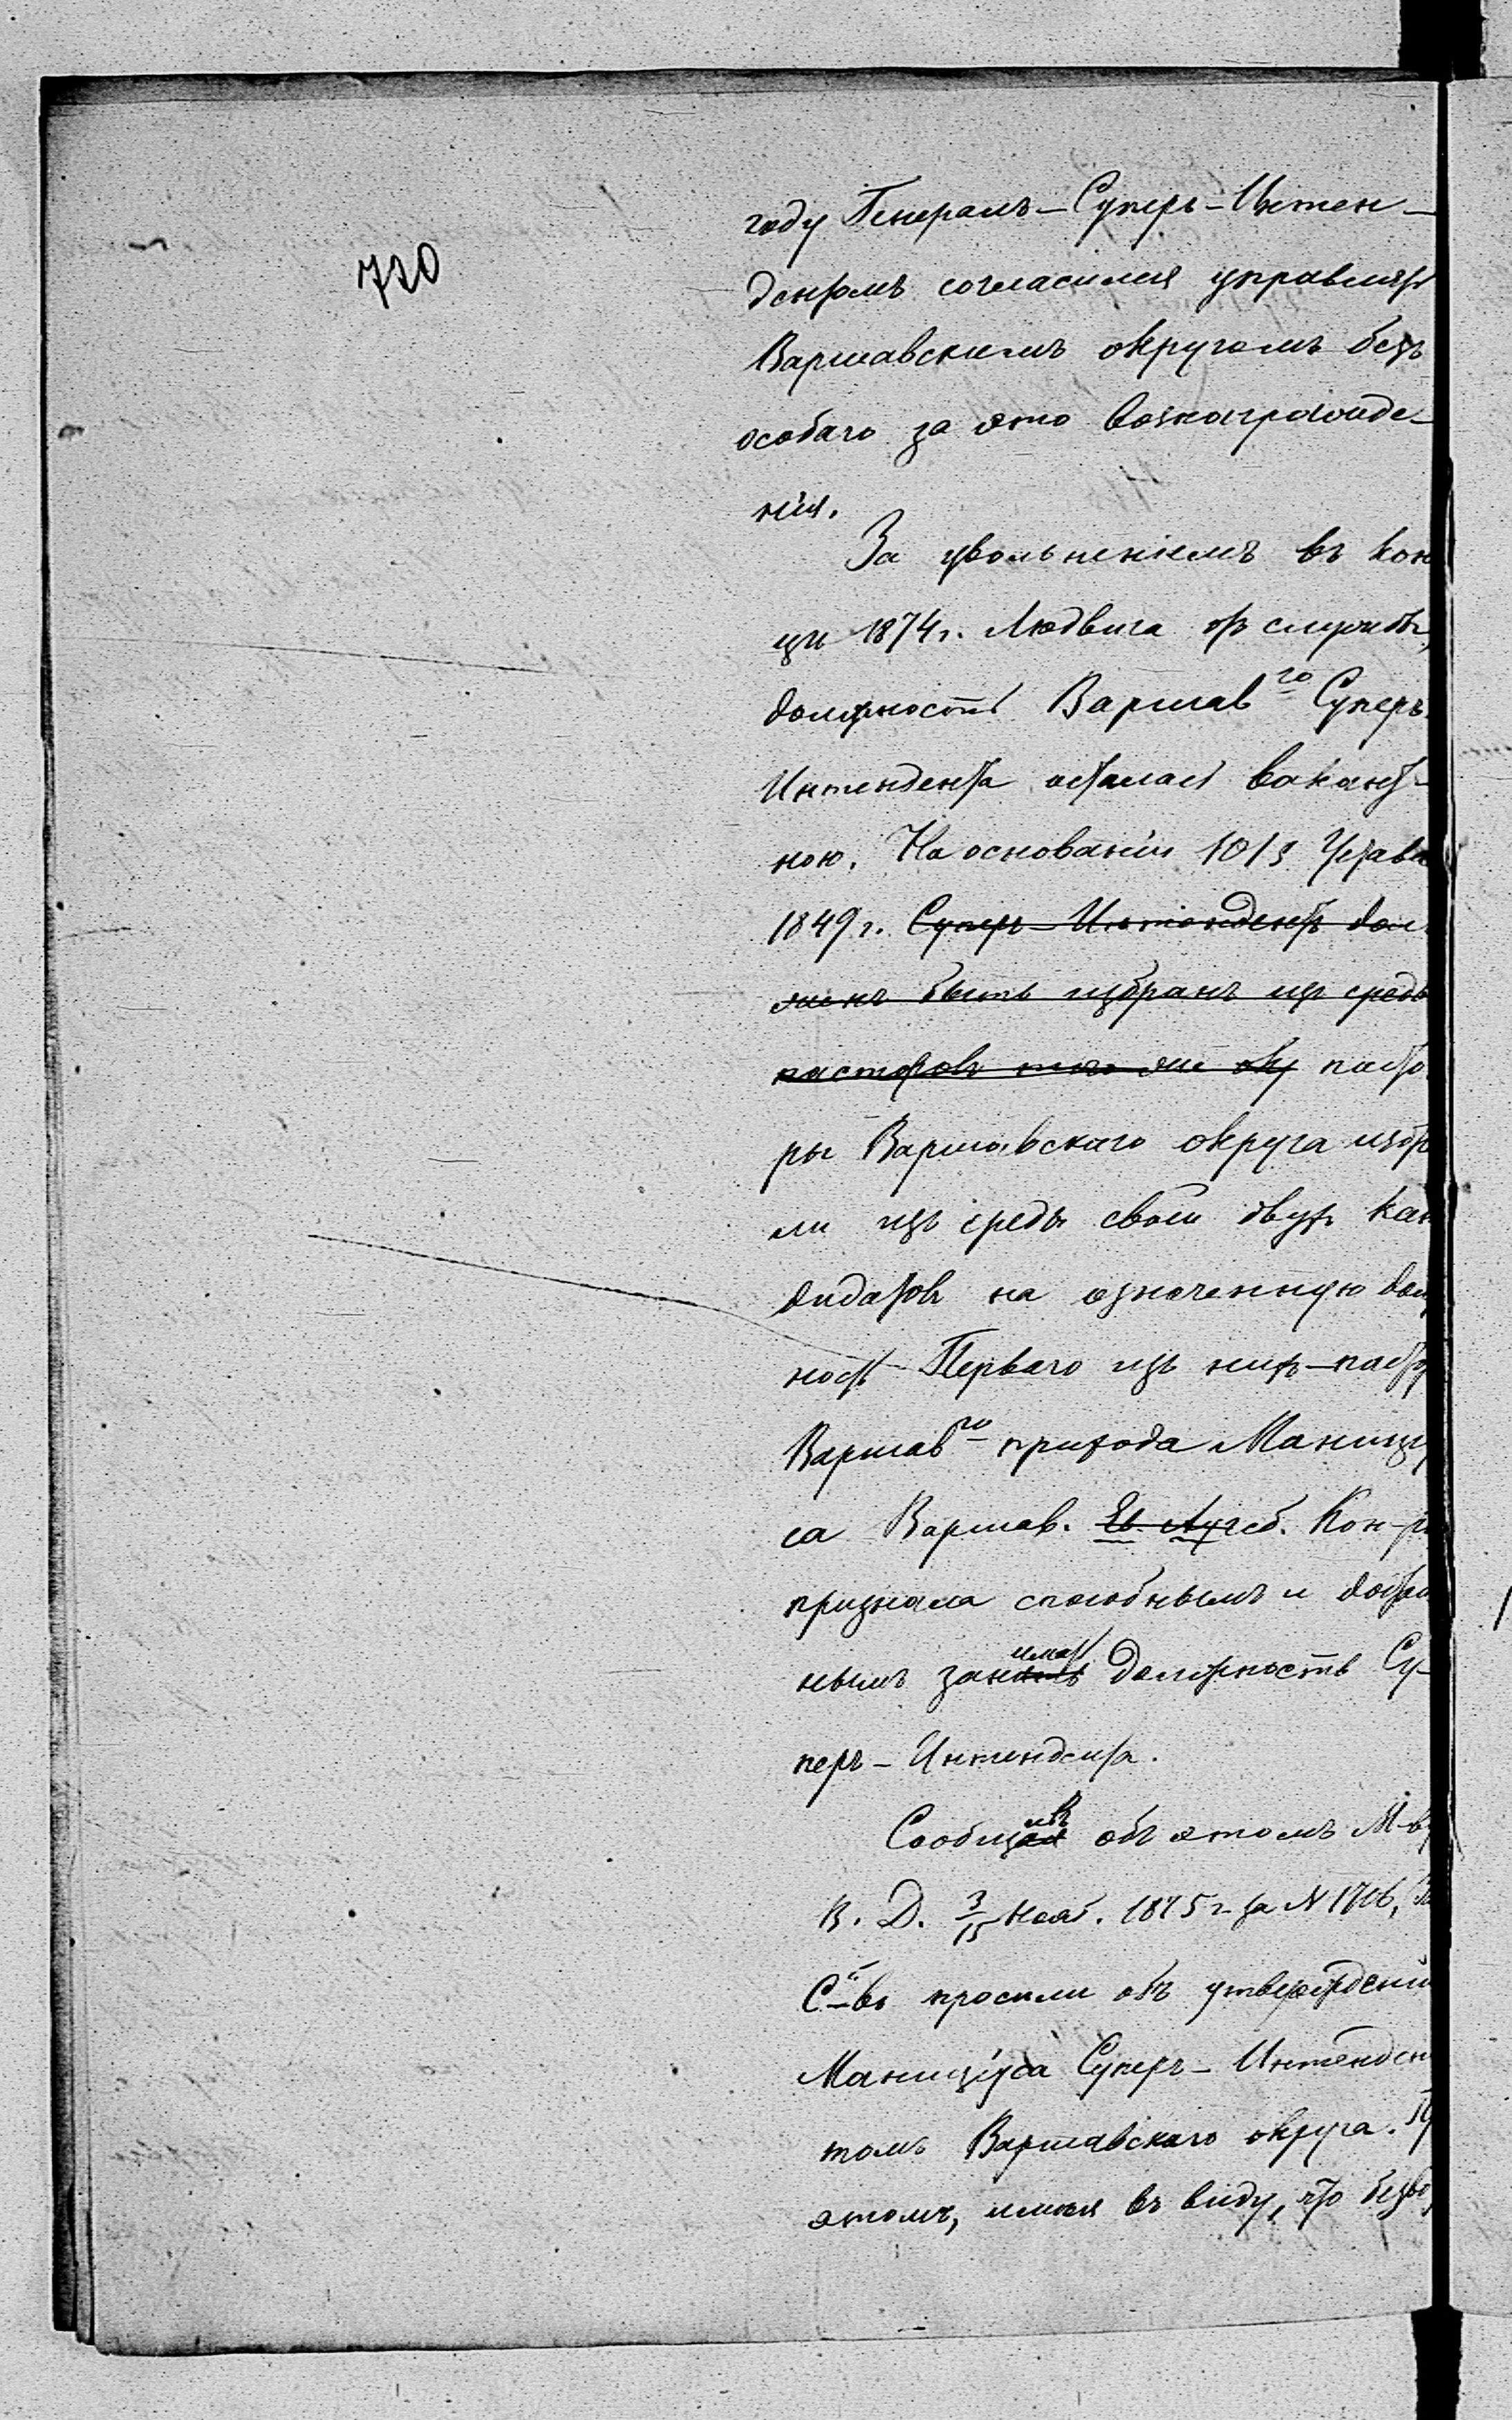 720
году Генералъ-Суперъ-Интен-
дентомъ согласился управлять
Варшавскимъ округомъ безъ
особаго за это вознагражде-
нія.
За увольненіемъ въ кон
цѣ 1874 г. Людвига отъ службы,
должность Варшав го Суперъ
Интендента осталась вакант-
ною. На основаніи 101 § Устава
1849 г. Суперъ-Интендентъ дол
женъ быть избранъ изъ среды
пасторовъ того же окр пасто
ры Варшавскаго округа избр
ли изъ среды своей двухъ кан
дидатовъ на означенную долж
ность Перваго изъ нихъ-пастор
Варшав го прихода Маницу
са Варшав. Ев. Аугсб. Кон-р
признала способнымъ и достой
нымъ занять имать должность Су-
перъ-Интендента.
Сообщая ивъ объ этомъ М-ву
В. Д. 3/15 Нояб. 1875 г. за N 1706,
С-во просили объ утвержденіи
Маниціуса Суперъ-Интенден
томъ Варшавскаго округа. Пр
этомъ, имѣя въ виду, что безво